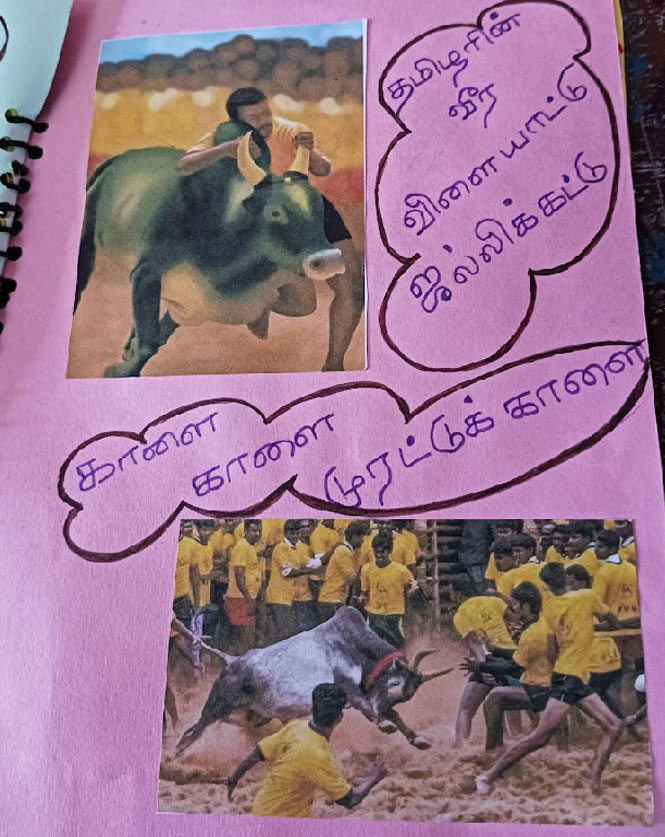 தமிழரின்
வீர
விளையாட்டு
ஜல்லிக்கட்டு
காளை
காளை
முரட்டுக் காளை